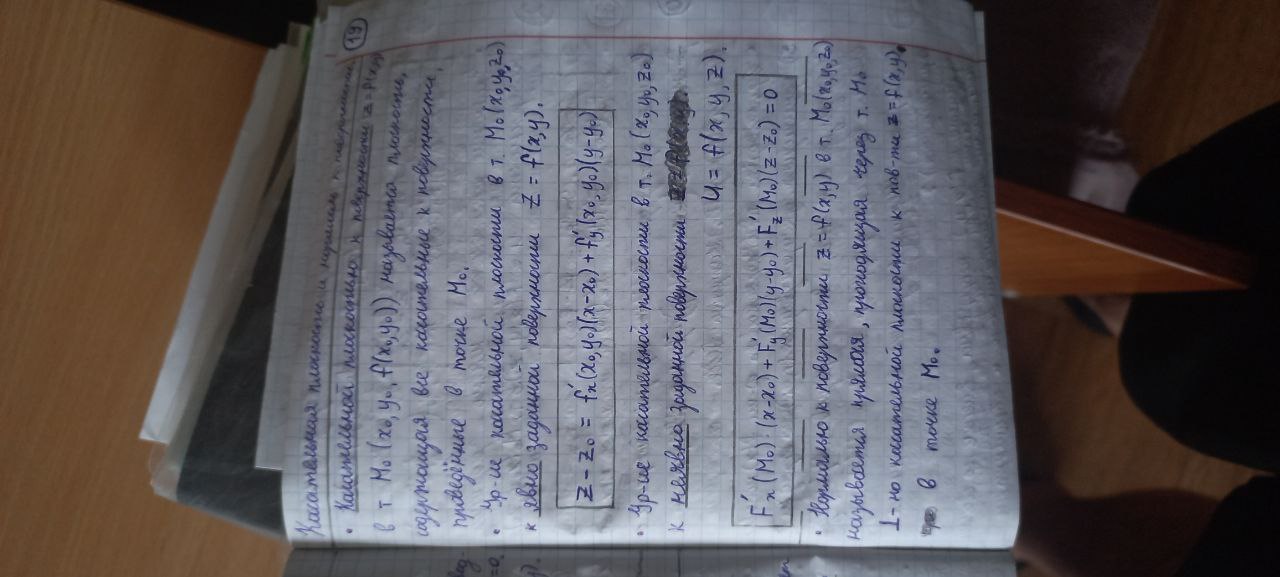 19
Касательная плоскость и нормаль к поверхности
• Касательной плоскостью к поверхности z = f(x,y)
в т M₀(x₀, y₀, f(x₀,y₀)) называется плоскость,
содержащая все касательные к поверхности,
проведённые в точке M₀.
• Ур-ие касательной плоскости в т. M₀(x₀,y₀,z₀)
к явно заданной поверхности z = f(x,y).
z - z₀ = f'ₓ(x₀,y₀)(x-x₀) + f'y(x₀,y₀)(y-y₀)
• Ур-ие касательной плоскости в т. M₀(x₀,y₀,z₀)
к неявно заданной поверхности
u = f(x,y,z).
F'ₓ(M₀)(x-x₀) + F'y(M₀)(y-y₀) + F'z(M₀)(z-z₀) = 0
• Нормалью к поверхности z = f(x,y) в т. M₀(x₀,y₀,z₀)
называется прямая, проходящая через т. M₀
⊥-но касательной плоскости к пов-ти z = f(x,y).
в точке M₀.